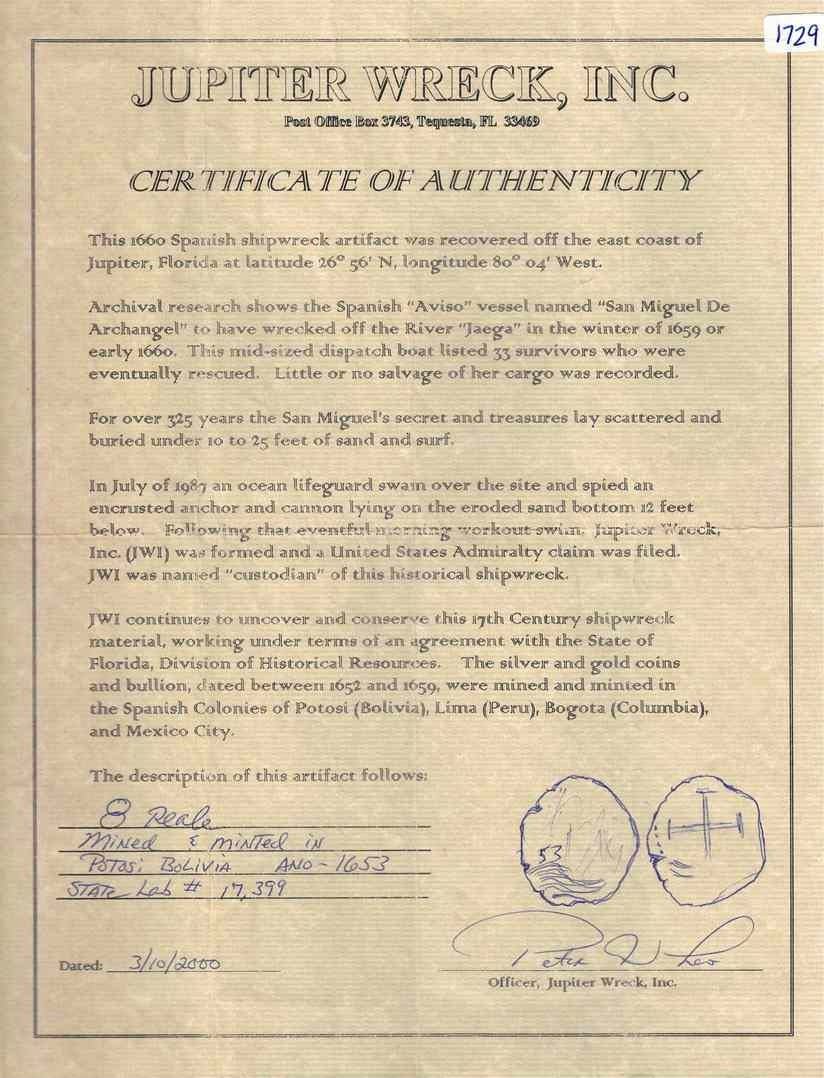 1729
JUPITER WRECK, INC.
Post Office Box 3743, Tequesta, FL 33469
CERTIFICATE OF AUTHENTICITY
This 1660 Spanish shipwreck artifact was recovered off the east coast of
Jupiter, Florida at latitude 26° 56' N, longitude 80° 04' West.
Archival research shows the Spanish "Aviso" vessel named "San Miguel De
Archangel" to have wrecked off the River "Jaega" in the winter of 1659 or
early 1660. This mid-sized dispatch boat listed 33 survivors who were
eventually rescued. Little or no salvage of her cargo was recorded.
For over 325 years the San Miguel's secret and treasures lay scattered and
buried under 10 to 25 feet of sand and surf.
In July of 1987 an ocean lifeguard swam over the site and spied an
encrusted anchor and cannon lying on the eroded sand bottom 12 feet
below. Following that eventful morning workout swim, Jupiter Wreck,
Inc. (JWI) was formed and a United States Admiralty claim was filed.
JWI was named "custodian" of this historical shipwreck.
JWI continues to uncover and conserve this 17th Century shipwreck
material, working under terms of an agreement with the State of
Florida, Division of Historical Resources. The silver and gold coins
and bullion, dated between 1652 and 1659, were mined and minted in
the Spanish Colonies of Potosi (Bolivia), Lima (Peru), Bogota (Columbia),
and Mexico City.
The description of this artifact follows:
8 Reale
Mined & minted in
Potosi Bolivia ANO - 1653
State Lab # 17,399
53
Dated: 3/10/2000
Peter
Officer, Jupiter Wreck, Inc.